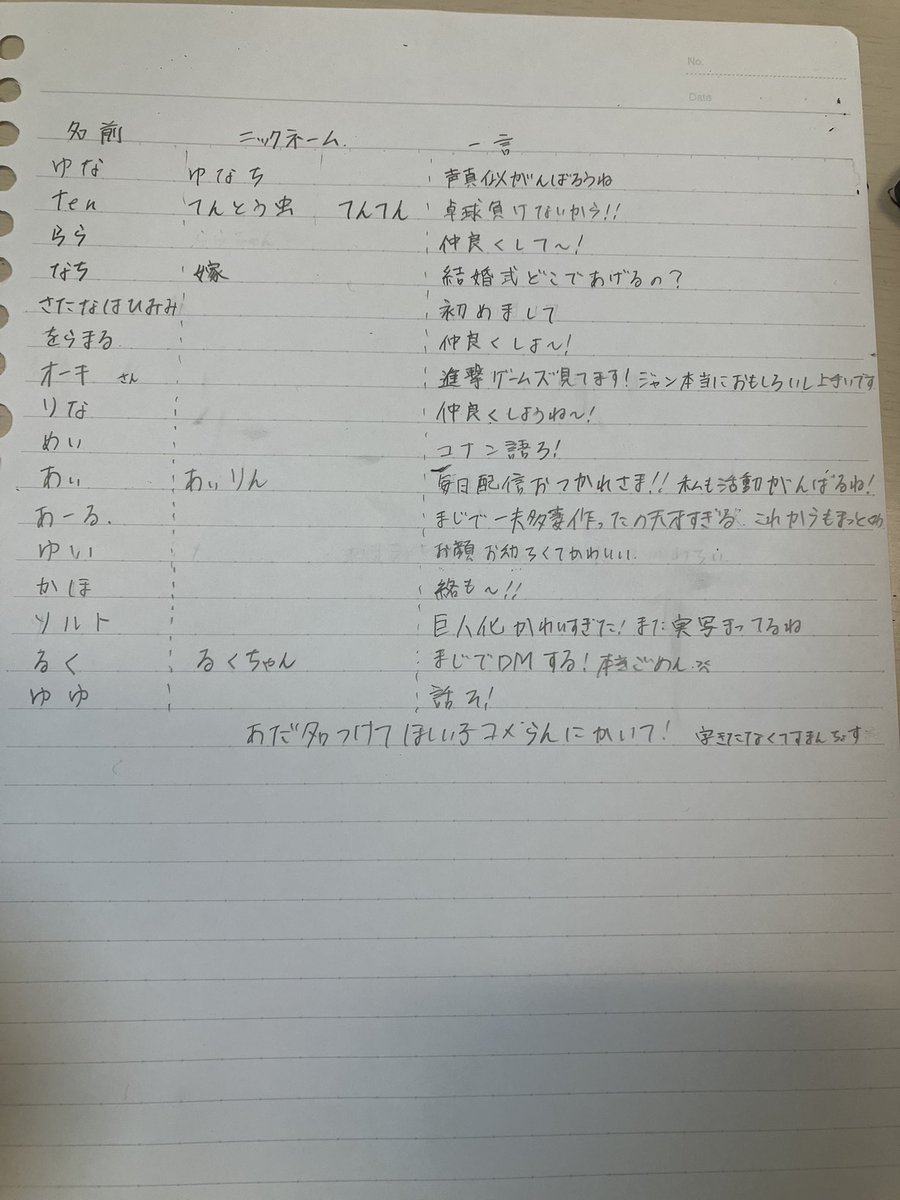 No.
Date
名前 ニックネーム 一言
ゆな ゆなち 声真似がんばろうね
ten てんとう虫 てんてん 卓球負けないから!!
らら 仲良くして〜!
なち 嫁 結婚式どこであげるの?
さたなはひみみ 初めまして
をらまる 仲良くしよ〜!
オーキ さん 進撃ゲームズ見てます!ジャン本当におもしろいし上手いです
りな 仲良くしようね〜!
めい コナン語ろ!
あぃ あぃりん 毎日配信おつかれさま!! 私も活動がんばるね!
あーる. まじで一夫多妻作ったの天才すぎる これからもまっとめ
ゆい お顔お幼くてかわいい
かほ 絡も〜!!
ソルト 巨人化かわいすぎた!また実写まってるね
るく るくちゃん まじでDMする! ごめん
ゆゆ 話そ!
あだ名つけてほしい子コメらんにかいて! 字きたなくてすまんちょす